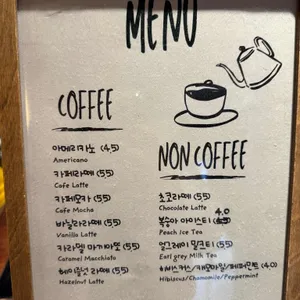 MENU
COFFEE
아메리카노 (4.5)
Americano
카페라떼 (5.5)
Cafe Latte
카페모카 (5.5)
Cafe Mocha
바닐라라떼 (5.5)
Vanilla Latte
카라멜 마끼아또 (5.5)
Caramel Macchiato
헤이즐넛 라떼 (5.5)
Hazelnut Latte
NON COFFEE
초코라떼 (5.5)
Chocolate Latte
4.0
복숭아 아이스티
Peach Ice Tea
얼그레이 밀크티 (5.5)
Earl grey Milk Tea
히비스커스/캐모마일/페퍼민트 (4.0)
Hibiscus/Chamomile/Peppermint